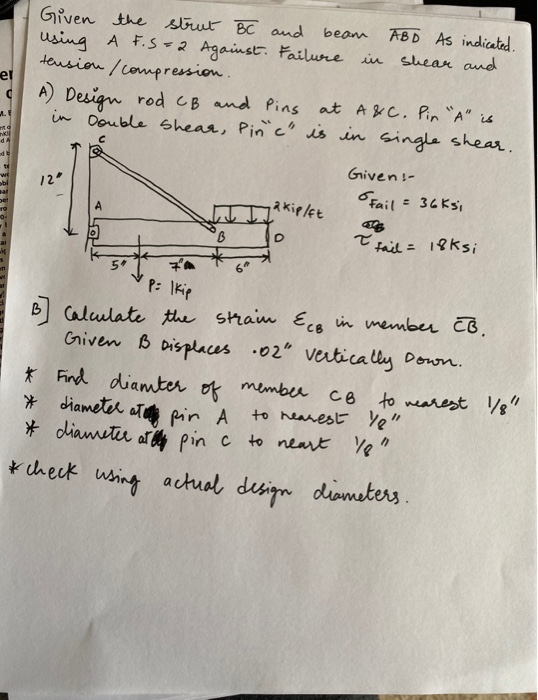 Given the strut BC and beam ABD As indicated.
using A F.S = 2 Against. Failure in shear and
tension/compression.
A) Design rod CB and Pins at A & C. Pin "A" is
in Double shear, Pin "C" is in single shear.
C
12"
Given:-
A
2 kip/ft
σ Fail = 36 Ksi
B
D
τ Fail = 18 Ksi
5"
7"
6"
P = 1 Kip
B] Calculate the strain ε CB in member CB.
Given B Displaces .02" Vertically Down.
* Find diamter of member CB to nearest 1/8"
* diameter at pin A to nearest 1/8"
* diameter at pin C to neart 1/8"
* check using actual design diameters.